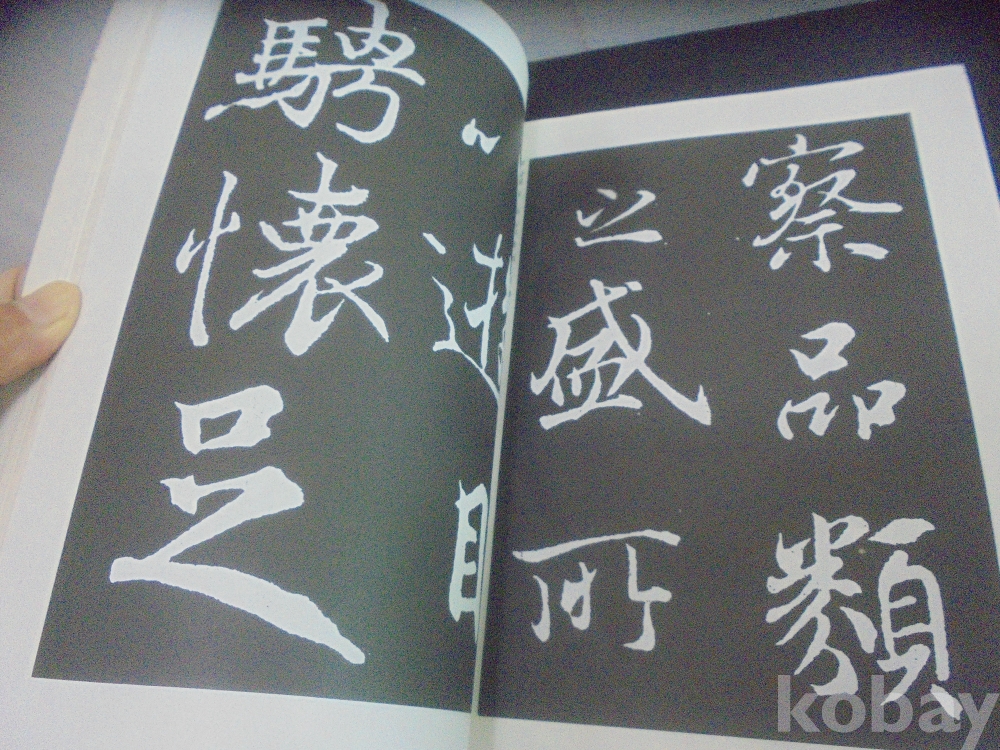 察品類
之盛所
以遊目
騁懷足
kobay